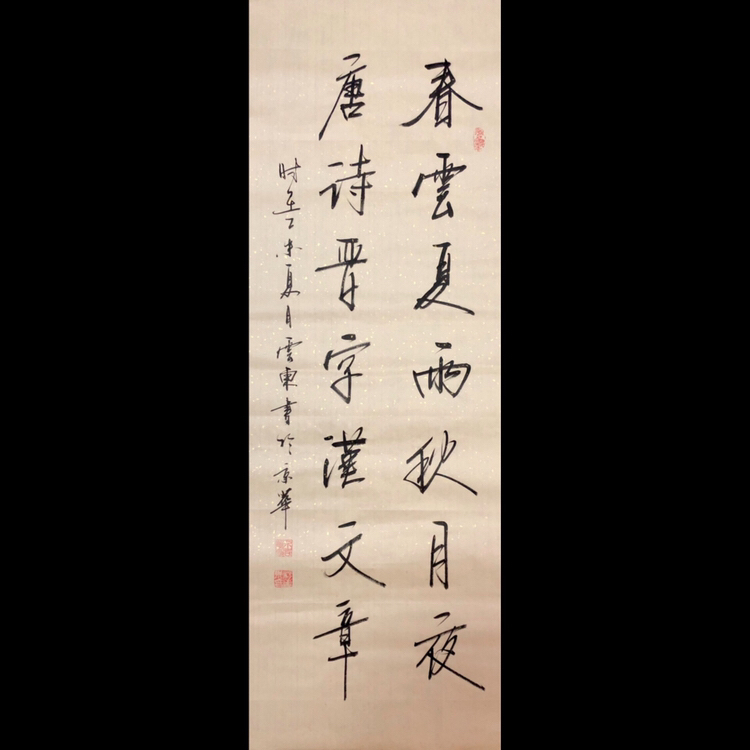 春雲夏雨秋月夜
唐詩晋字漢文章
时在丁未夏月雲東書於京華